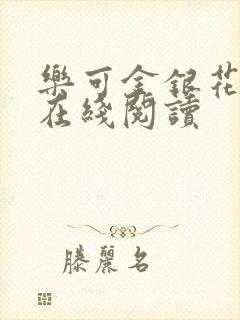 樂可金銀花
在綫閱讀
滕麗名